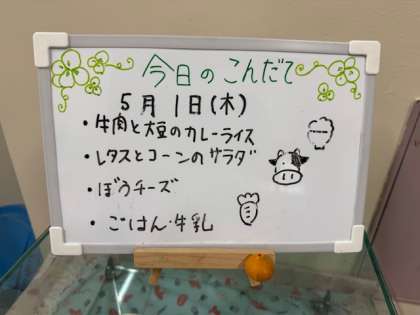 今日のこんだて
5月1日(木)
・牛肉と大豆のカレーライス
・レタスとコーンのサラダ
・ぼうチーズ
・ごはん・牛乳